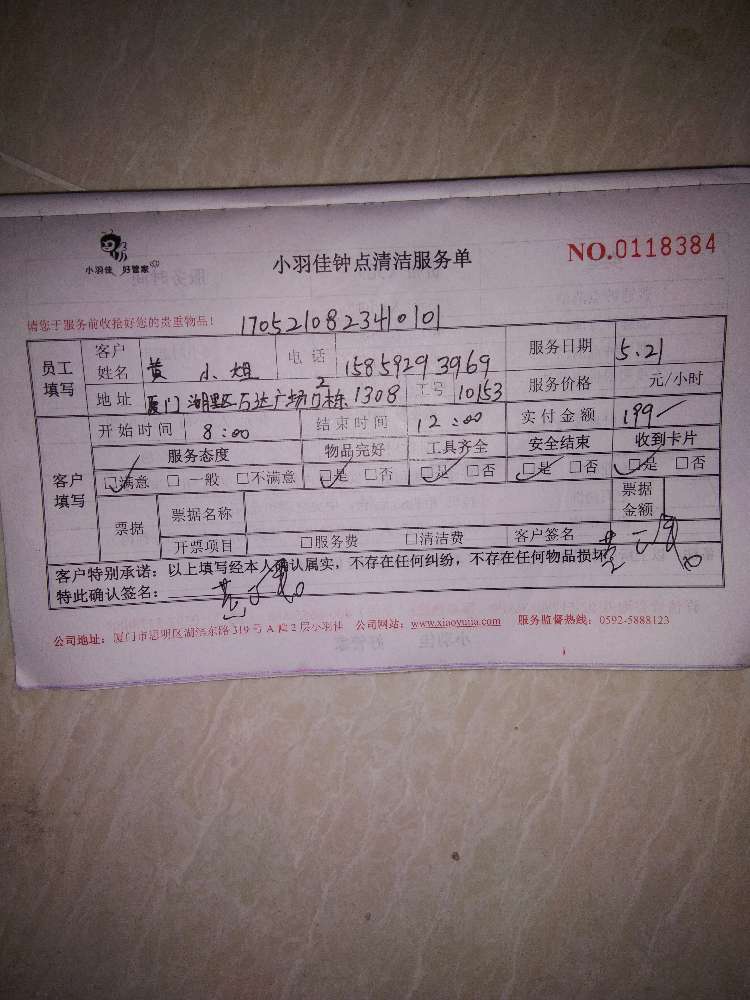 小羽佳 好管家
小羽佳钟点清洁服务单
NO.0118384
请您于服务前收拾好您的贵重物品！ 1705210823410101
员工填写 客户姓名 黄小姐 电话 15859293969 服务日期 5.21
地址 厦门湖里区万达广场 2栋1308 工号 10153 服务价格 元/小时
客户填写 开始时间 8:00 结束时间 12:00 实付金额 199
服务态度 物品完好 工具齐全 安全结束 收到卡片
☑满意 □一般 □不满意 ☑是 □否 ☑是 □否 ☑是 □否 ☑是 □否
票据 票据名称 票据金额
开票项目 □服务费 □清洁费 客户签名
客户特别承诺：以上填写经本人确认属实，不存在任何纠纷，不存在任何物品损坏。
特此确认签名：
公司地址：厦门市思明区湖滨东路319号A座2层小羽佳 公司网站：www.xiaoyujia.com 服务监督热线：0592-5888123